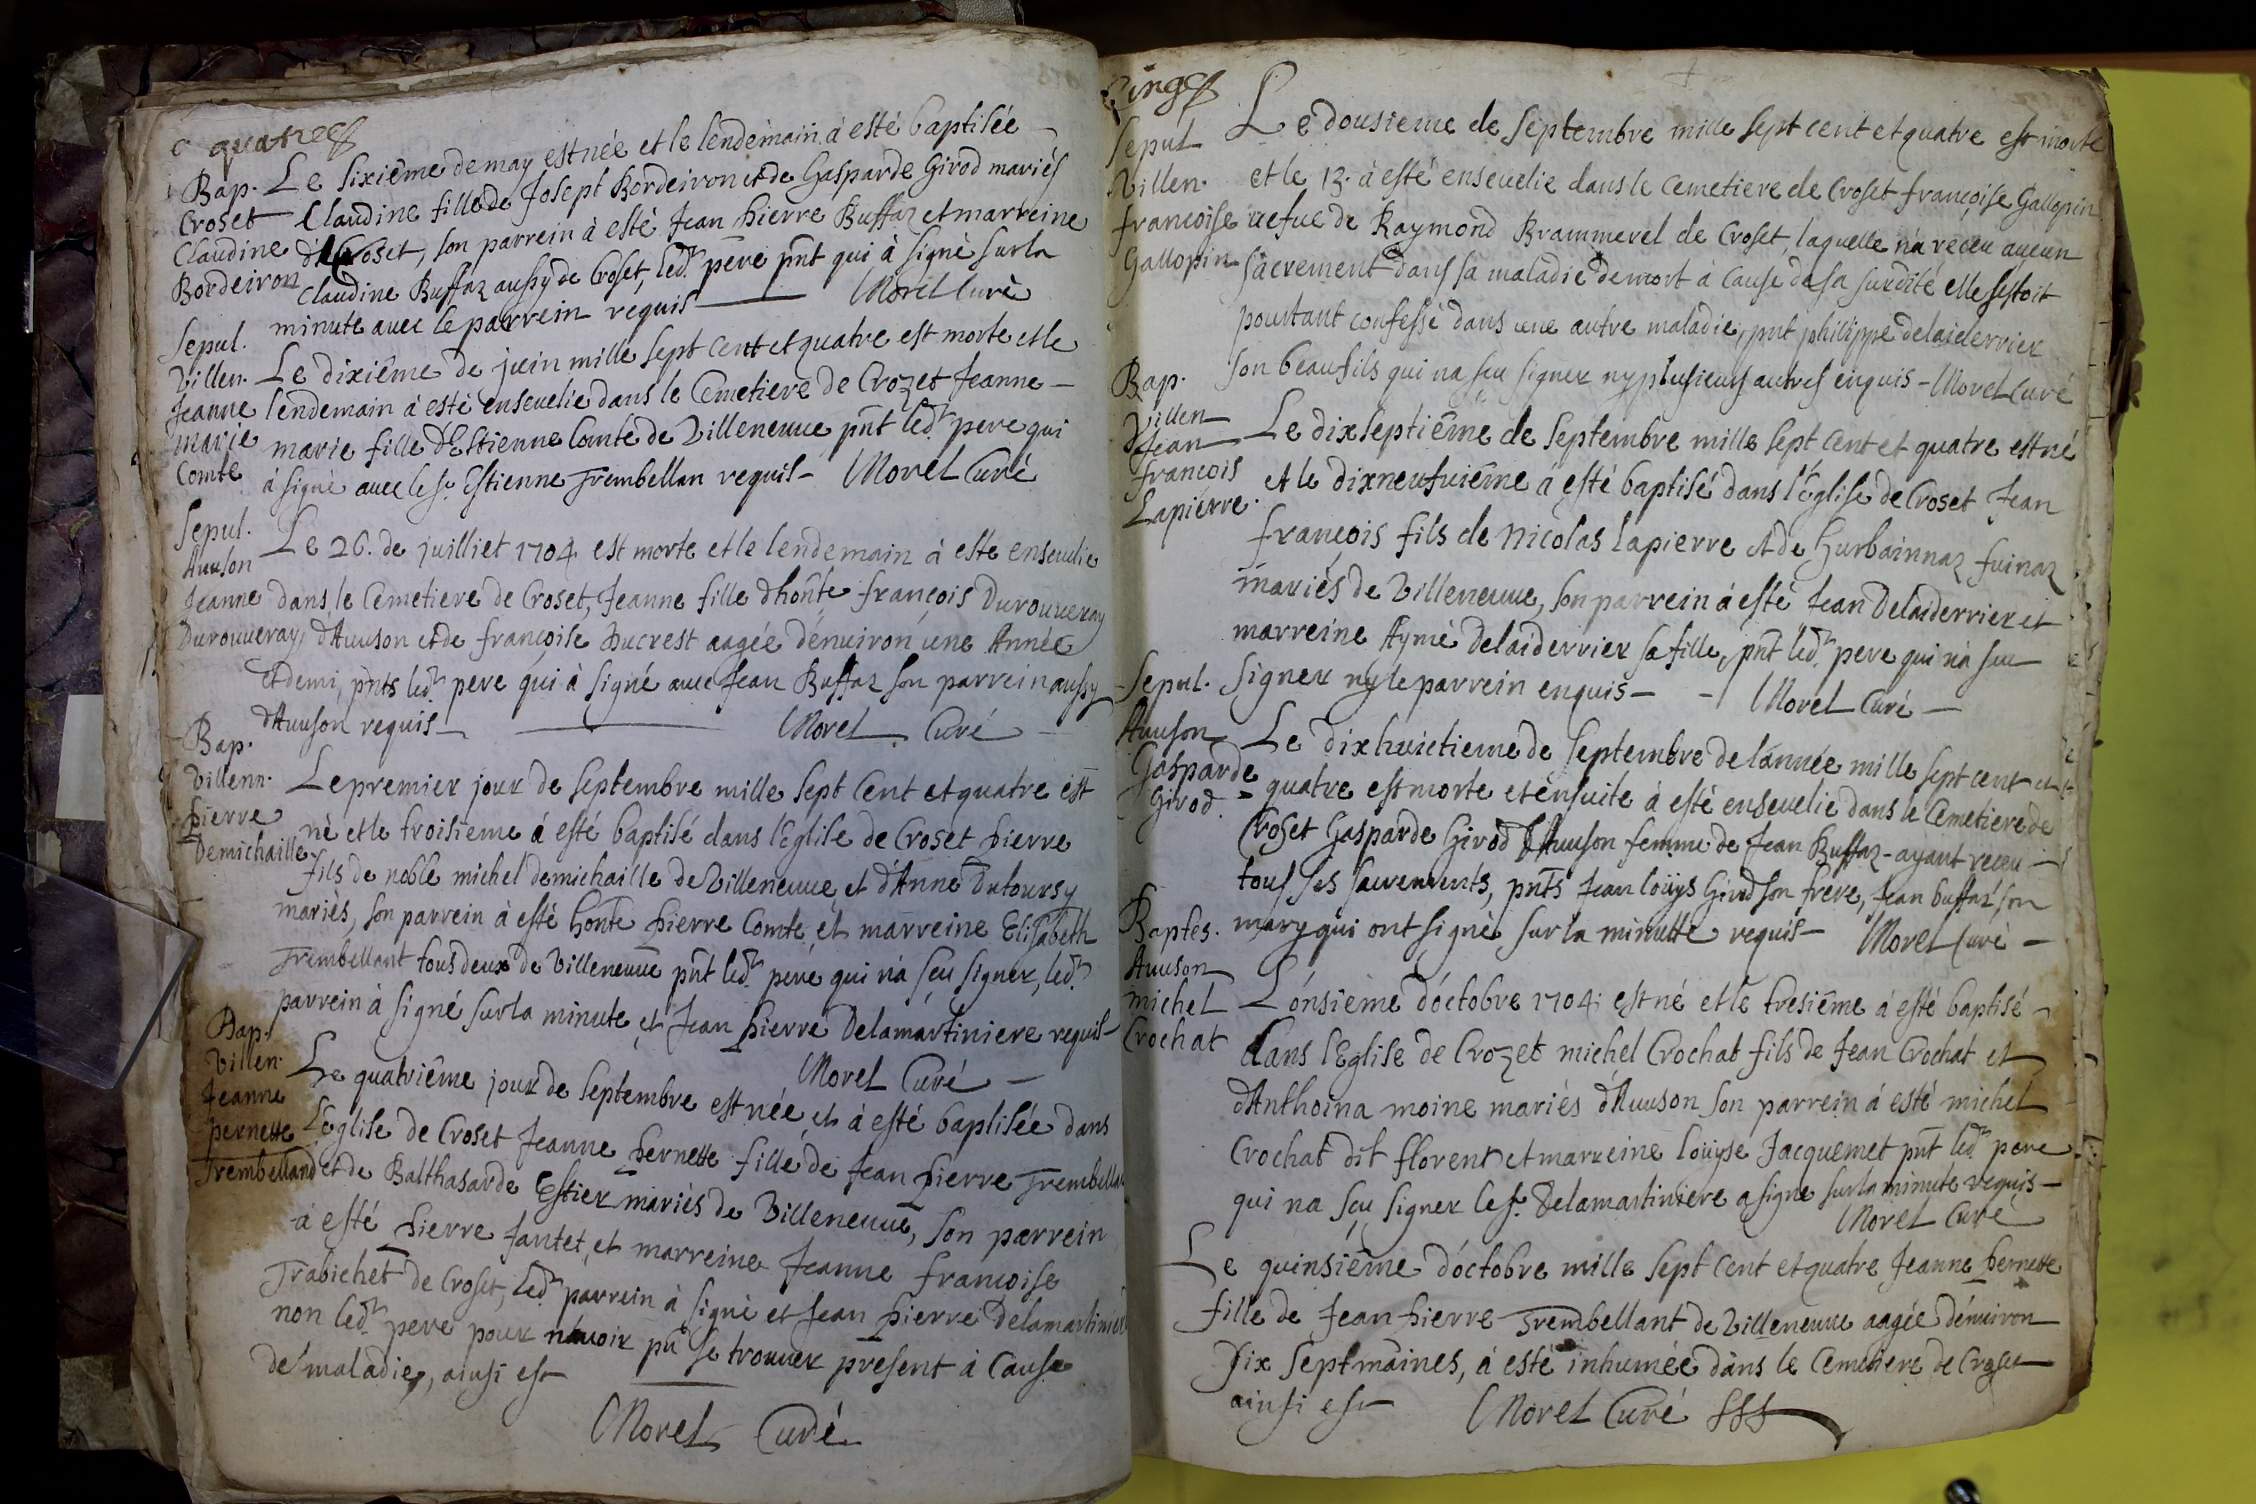 quatre
Bap. Le sixiême de may est née et le lendemain à esté baptisée
Croset Claudine fille de Joseph Bordeiron et de Gasparde Girod mariés
Claudine de Croset, son parrein à esté Jean pierre Buffaz et marreine
Bordeiron Claudine Buffaz aussy de Croset, led.t pere pnt qui à signé sur la
minute avec le parrein requis — Morel Curé
Sepul.
Villen. Le dixiême de juin mille sept cent et quatre est morte et le
Jeanne lendemain à esté enseuelie dans le Cemetiere de Crozet Jeanne —
marie marie fille d'Estienne Comte de Villeneuue pnt led.t pere qui
Comte à signé auec le s.r Estienne Trembellan requis — Morel Curé
Sepul.
Auuson Le 26. de juilliet 1704 est morte et le lendemain à este enseuelie
Jeanne dans le Cemetiere de Croset, Jeanne fille d'honte françois Durouueray
Durouueray d'Auuson et de françoise Ducrest aagée dénuiron une Année
et demi, pnts led.t pere qui à signé auec Jean Buffaz son parrein aussy
d'Auuson requis — Morel Curé
Bap.
Villenn. Le premier jour de septembre mille sept cent et quatre est
pierre né et le troisieme á esté baptisé dans l'Eglise de Croset pierre
Demichaille fils de noble michel demichaille de Villeneuue et d'Anne Dutoursy
mariés, son parrein à esté honte pierre Comte, et marreine Elisabeth
Trembellant tous deux de Villeneuue pnt led.t pere qui n'a sçu signer, led.t
parrein à signé sur la minute, et Jean pierre Delamartiniere requis —
Morel Curé —
Bap.
Villen. Le quatriême jour de septembre est née, et à esté baptisée dans
Jeanne
pernette L'eglise de Croset Jeanne pernette fille de Jean pierre Trembellan
Trembelland et de Balthasarde Estier mariés de Villeneuue, son parrein
á esté pierre Jantet, et marreine Jeanne françoise
Trabichet de Croset, led.t parrein à signé et Jean pierre Delamartiniere
non led.t pere pour n'auoir pu se trouuer present à Cause
de maladie, ainsi est
Morel Curé
Sepul Le dousieme de septembre mille sept cent et quatre est morte
Villen. et le 13. à esté enseuelie dans le cemetiere de Croset françoise Gallopin
françoise uefue de Raymond Brammerel de Croset, laquelle n'a receu aucun
Gallopin sacrement dans sa maladie de mort à cause de sa surdité elle sestoit
pourtant confessé dans une autre maladie, pnt philippe delaiderrier
son beaufils qui na sçu signer ny plusieurs autres enquis — Morel Curé
Bap.
Villen
Jean Le dixseptiême de septembre mille sept cent et quatre est né
francois et le dixneufuiême á esté baptisé dans l'Eglise de Croset Jean
Lapierre. françois fils de Nicolas lapierre et de Gurbainnaz fuinaz
mariés de Villeneuue, son parrein á esté Jean Delaiderrier et
marreine Aymé Delaiderrier sa fille, pnt led.t pere qui n'a sçu
signer ny le parrein enquis — Morel Curé —
Sepul.
Auuson Le dixhuictieme de septembre de l'année mille sept cent et
Gasparde quatre est morte et ensuite à esté enseuelie dans le Cemetiere de
Girod. Croset Gasparde Girod d'Auuson femme de Jean Buffaz - ayant receu —
tous ses sacrements, pnts Jean loüys Girod son frere, Jean buffaz son
mary qui ont signé sur la minutte requis — Morel Curé —
Baptes.
Auuson
michel L'onsieme d'octobre 1704 est né et le tresiême á esté baptisé
Crochat dans l'Eglise de Crozet michel Crochat fils de Jean Crochat et
d'Anthoina moine mariés d'Auuson son parrein á esté michel
Crochat dit florent et marreine loüyse Jacquemet pnt led.t pere
qui na sçu signer le s.r Delamartiniere a signé sur la minute requis —
Morel Curé
Le quinsiême d'octobre mille sept cent et quatre Jeanne pernette
fille de Jean pierre Trembellant de Villeneuue aagée dénuiron
six septmaines, á esté inhumée dans le Cemetiere de Crozet
ainsi est Morel Curé